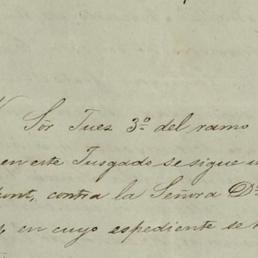 Sõr Juez 3º del ramo
en este Jusgado se sigue
contra la Señora Dª
en cuyo espediente se